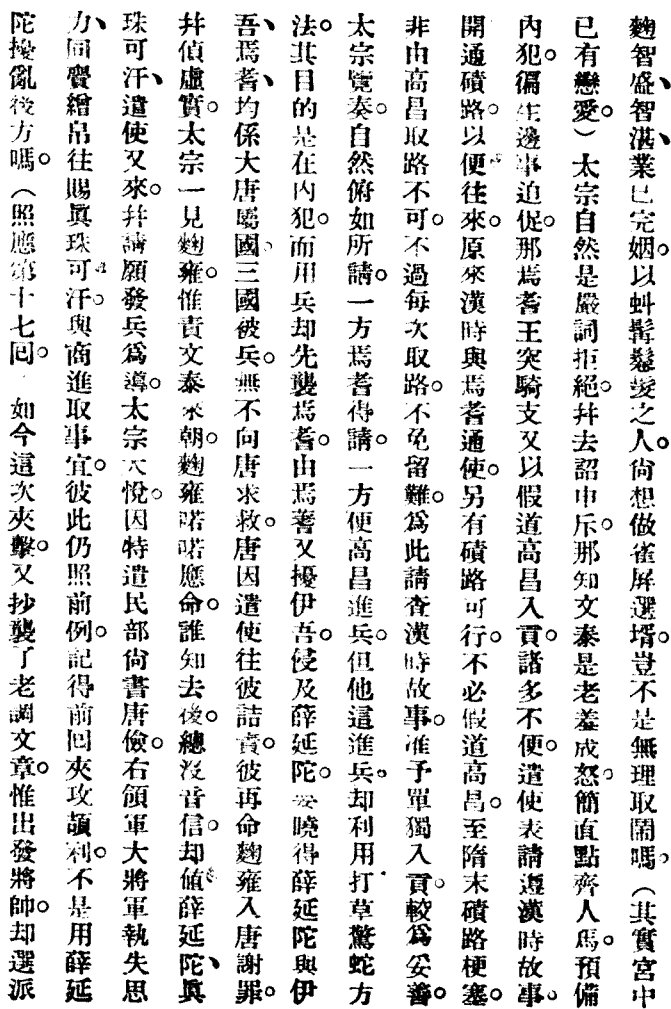 麴智盛智湛業已完姻。以虯髯鬈髮之人。尙想做雀屏選壻。豈不是無理取鬧嗎。（其實宮中
已有戀愛。）太宗自然是嚴詞拒絕。幷去詔申斥。那知文泰是老羞成怒。簡直點齊人馬。預備
內犯。偏生邊事迫促。那焉耆王突騎支又以假道高昌入貢。諸多不便。遣使表請遵漢時故事。
開通磧路。以便往來。原來漢時與焉耆通使。另有磧路可行。不必假道高昌。至隋末磧路梗塞。
非由高昌取路不可。不過每次取路。不免留難。爲此請查漢時故事。准予單獨入貢。較爲妥善。
太宗覽奏。自然俯如所請。一方焉耆得請。一方便高昌進兵。但他這進兵。却利用打草驚蛇方
法。其目的是在內犯。而用兵却先襲焉耆。由焉耆又擾伊吾。侵及薛延陀。要曉得薛延陀與伊
吾、焉耆、均係大唐屬國。三國被兵。無不向唐求救。唐因遣使往彼詰責。彼再命麴雍入唐謝罪。
幷偵虛實。太宗一見麴雍。惟責文泰來朝。麴雍喏喏應命。誰知去後。總沒音信。却値薛延陀、眞
珠可汗、遣使又來。幷請願發兵爲導。太宗大悅。因特遣民部尙書唐儉。右領軍大將軍執失思
力、同賫繒帛往賜眞珠可汗。與商進取事宜。彼此仍照前例。記得前回夾攻頡利。不是用薛延
陀擾亂後方嗎。（照應第十七回。）如今這次夾擊。又抄襲了老調文章。惟出發將帥。却選派